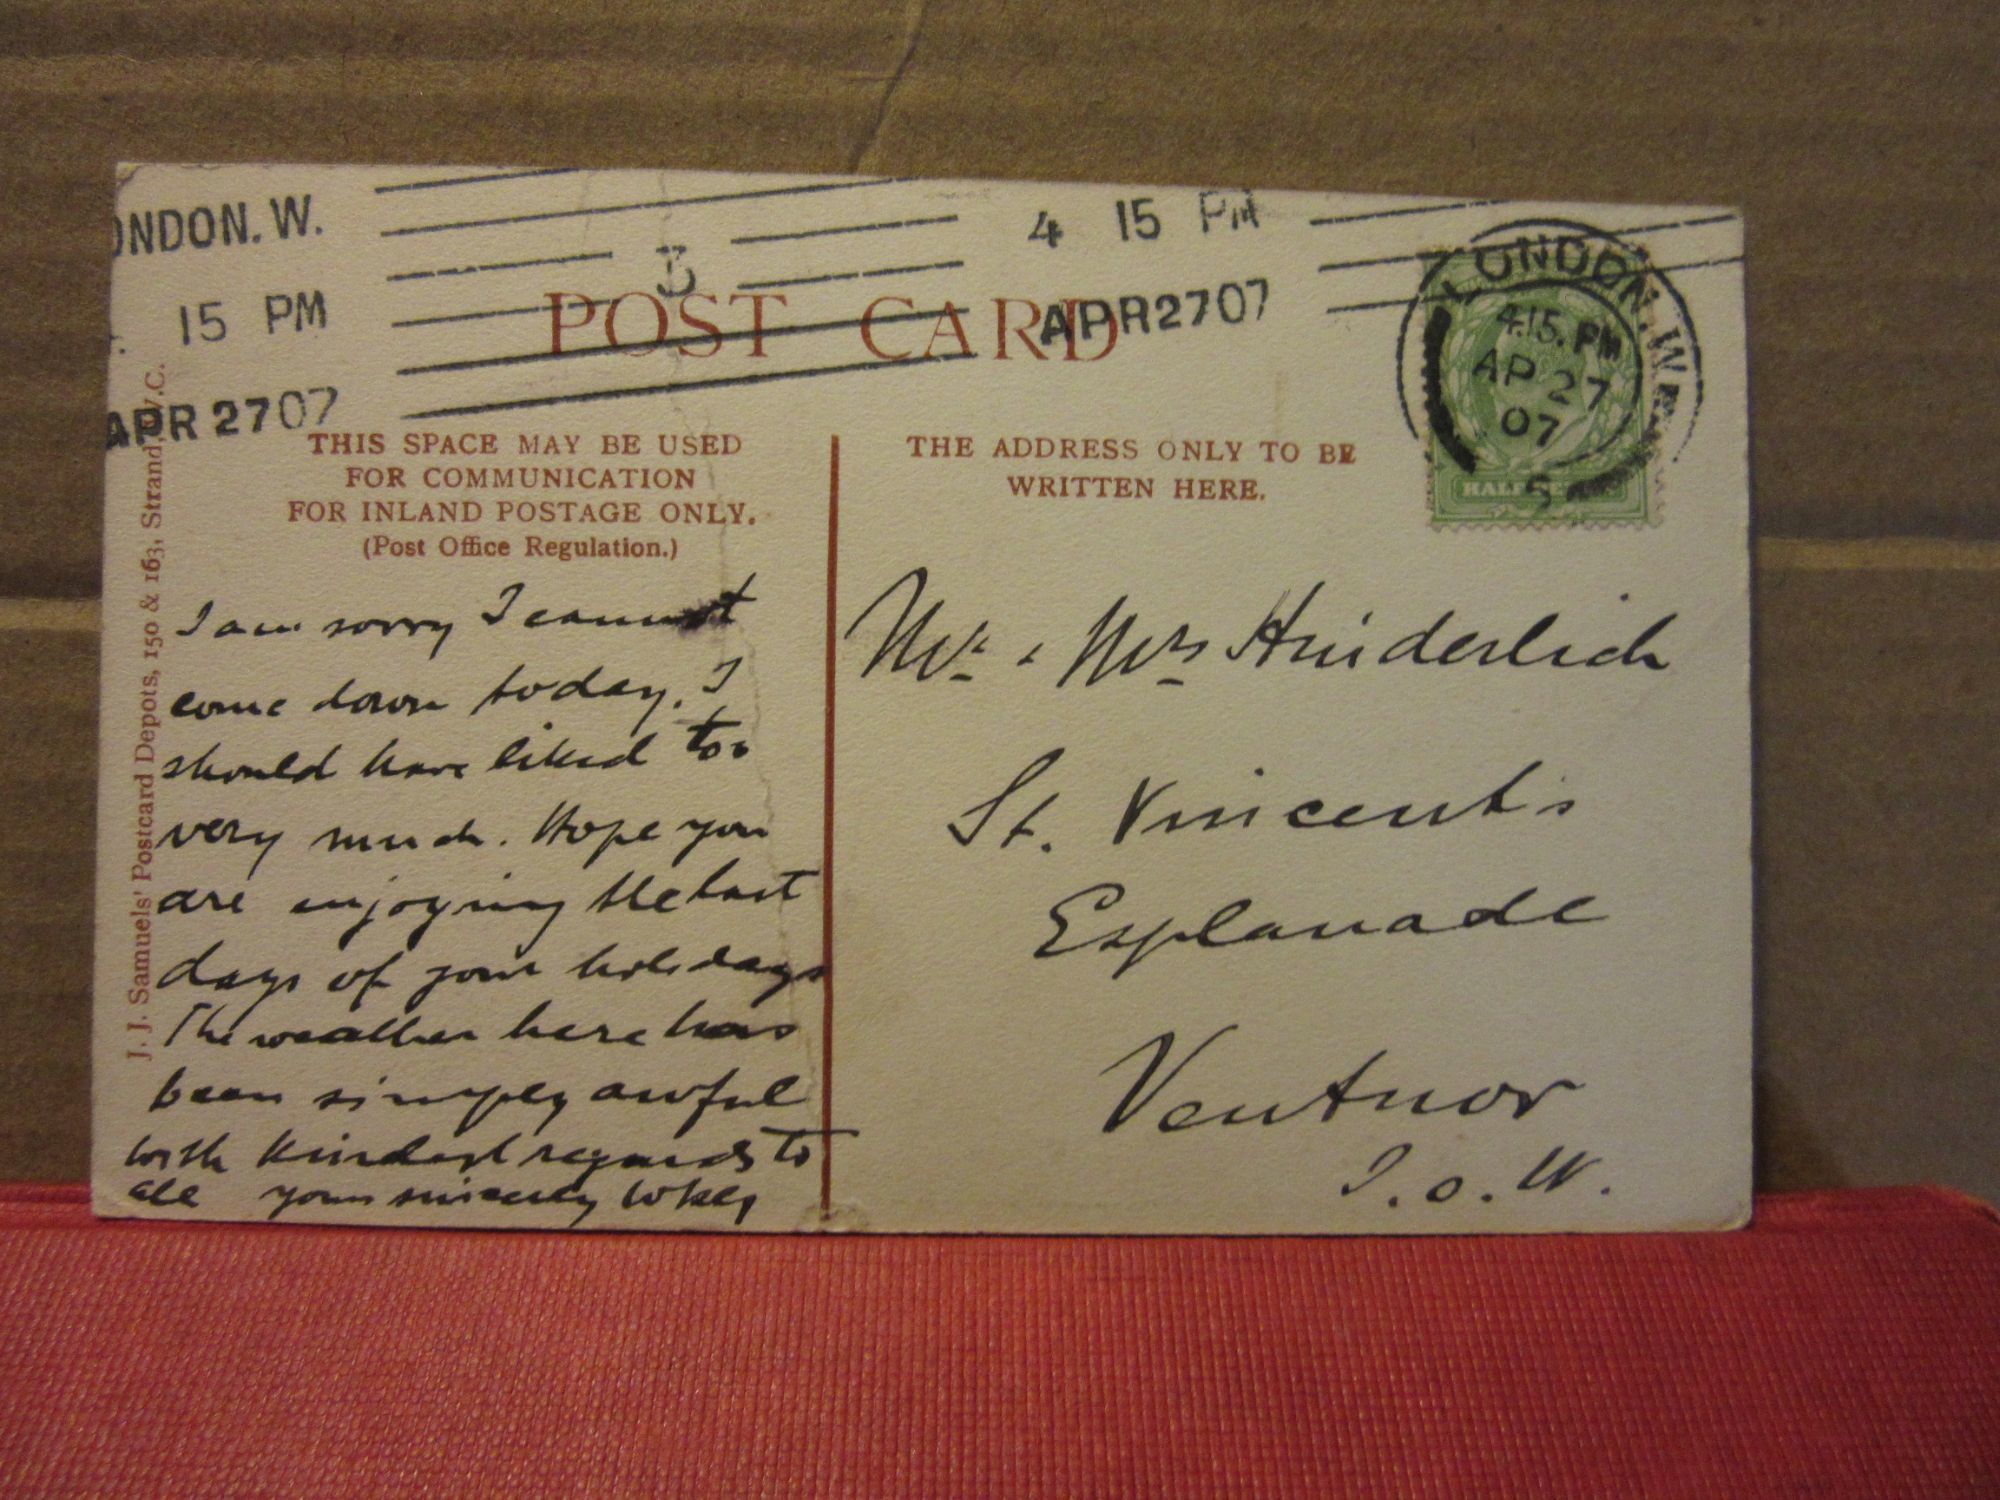 ONDON. W.
15 PM
APR 27 07
3
4 15 PM
APR 27 07
LONDON. W.
4.15. PM
AP 27
07
5
POST CARD
THIS SPACE MAY BE USED
FOR COMMUNICATION
FOR INLAND POSTAGE ONLY.
(Post Office Regulation.)
THE ADDRESS ONLY TO BE
WRITTEN HERE.
J. J. Samuels' Postcard Depots, 150 & 163, Strand, W.C.
I am sorry I cannot
come down today. I
should have liked to
very much. Hope you
are enjoying the last
days of your holidays
The weather here has
been simply awful
with kindest regards to
all yours sincerely
Mr. & Mrs Hinderlich
St. Vincent's
Esplanade
Ventnor
I.o.W.